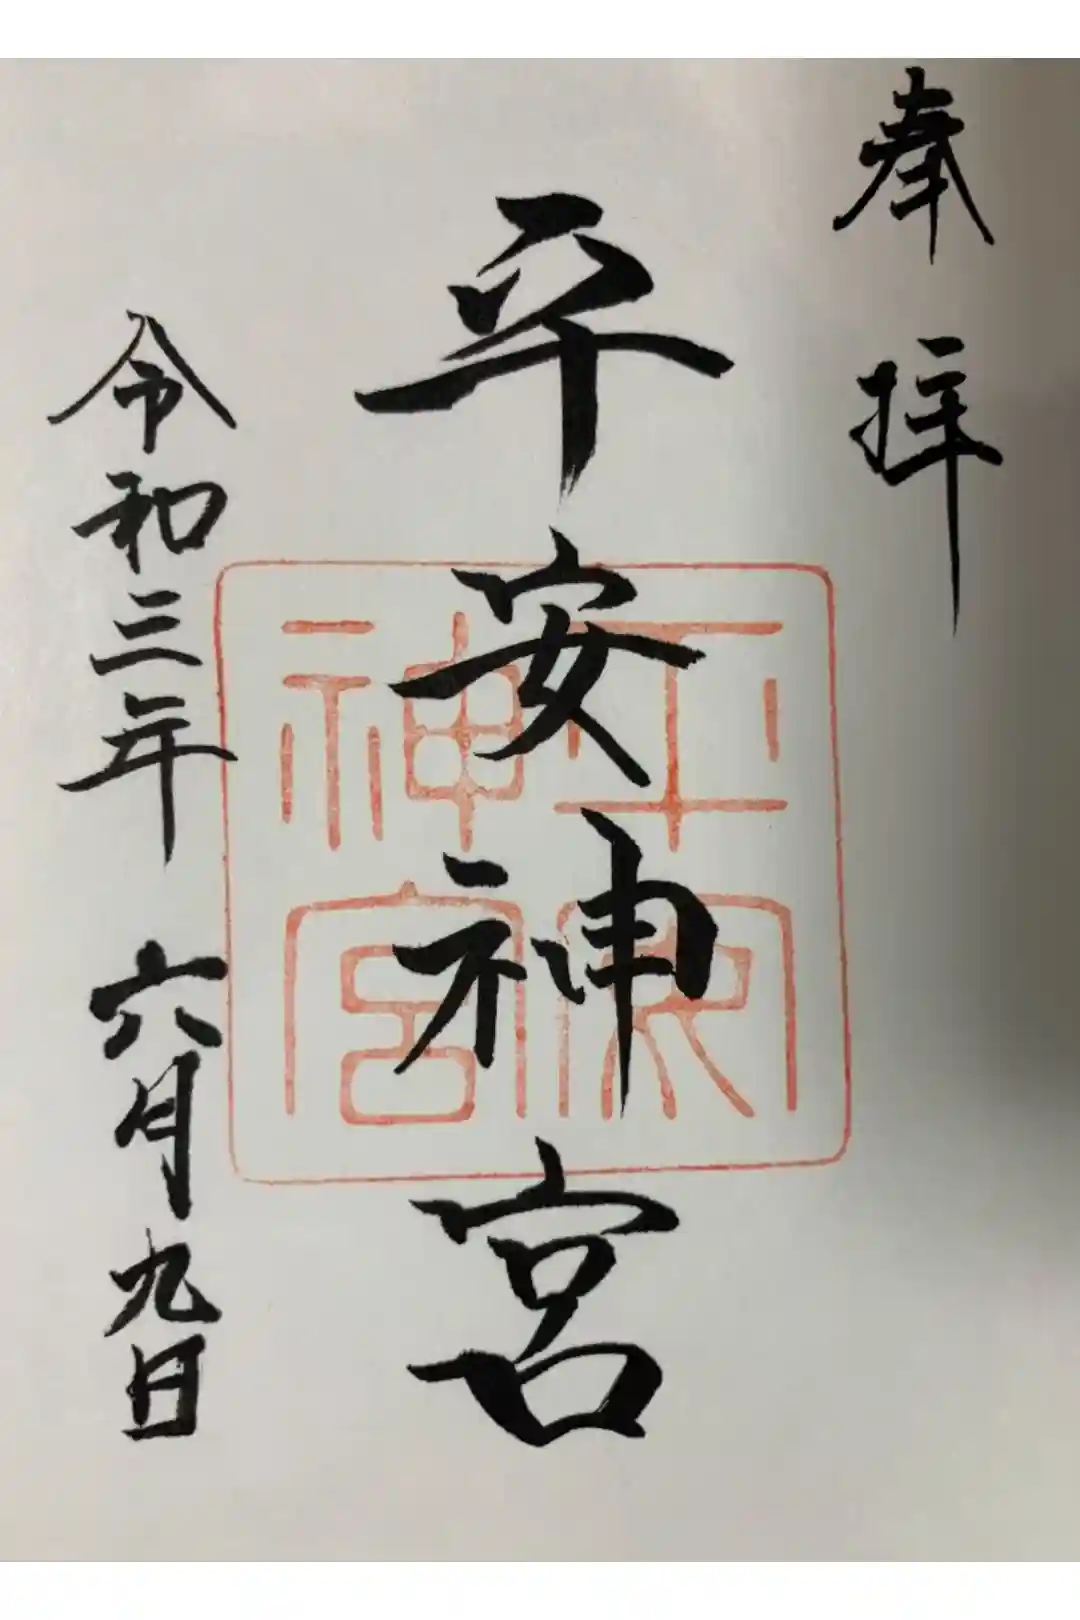 奉拝
平安神宮
平安神宮
令和三年 六月九日